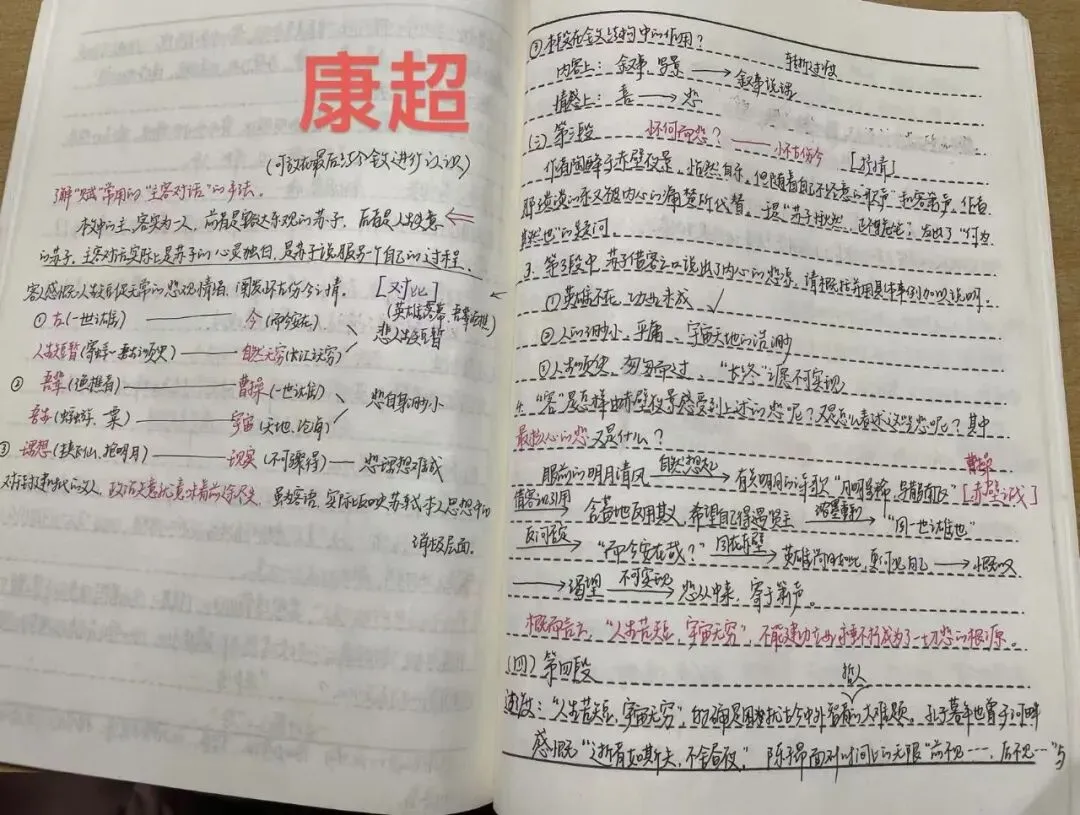 康超
(可放在最后与整个全文进行认识)
了解"赋"常用的"主客对话"的手法。
本文中的主、客实为一人,前者是豁达乐观的苏子,后者是人生失意
的苏子,主客对话实际上是苏子的心灵独白,是苏子说服另一个自己的过程。
客人感慨人生短促无常的悲观情绪,阐发怀古伤今之情。 [对比]
(英雄落幕,吾辈何堪)
① 古(一世之雄) 今(而今安在) 悲人生短暂
人生短暂(寄蜉蝣 须臾) 自然无穷(长江无穷)
② 吾辈(渔樵者) 曹操(一世之雄) 悲自身渺小
吾身(蜉蝣、粟) 宇宙(天地、沧海)
③ 理想(挟飞仙、抱明月) 现实(不可骤得) 悲理想难成
对封建时代的文人,政治失意就意味着前途不大,虽为客语,实际反映苏轼本人思想中的
消极层面。
③ 本段在全文结构中的作用?
内容上:叙事、写景 → 叙事说理 转折过渡
情感上:喜 → 悲
(三) 第三段 因何而悲? 怀古伤今 [抒情]
作者陶醉于赤壁夜景,怡然自乐,但随着自己不经意的歌声和客箫声,作者
那淡淡的乐又被内心的痛楚所代替。 "苏子愀然,正襟危坐",发出了"何为
其然也"的疑问。
3. 第3段中,苏子借客之口说出了内心的悲哀,请概括并用具体事例加以说明。
① 英雄不在,功业未成 ✓
② 人的渺小、平庸、宇宙天地的浩渺
③ 人生须臾,匆匆而过,"长终"之愿不可实现
4. "客"是怎样由赤壁夜景感受到上述的悲呢?又是怎么表述这些悲呢?其中
最核心的悲又是什么?
眼前的明月清风 自然想起 → 有关明月的诗歌 "月明星稀,乌鹊南飞" [赤壁之战] 曹操
借客之口引用 → 含蓄地反用其义,希望自己得遇贤主 → "固一世之雄也"
反问语气 → "而今安在哉?" 回应赤壁 → 英雄尚且如此,更何况自己 → 感叹
→ 渴望 不可实现 → 悲从中来,寄于箫声。
概而言之,"人生苦短,宇宙无穷",不能建功立业,永垂不朽成为了一切悲的根源。
(四) 第四段
过渡:"人生苦短,宇宙无穷"的确是困扰古今中外哲人的大难题。孔子暮年也曾于河畔
感慨"逝者如斯夫,不舍昼夜。" 陈子昂面对时间上的无限"前不见……,后不见……"
5